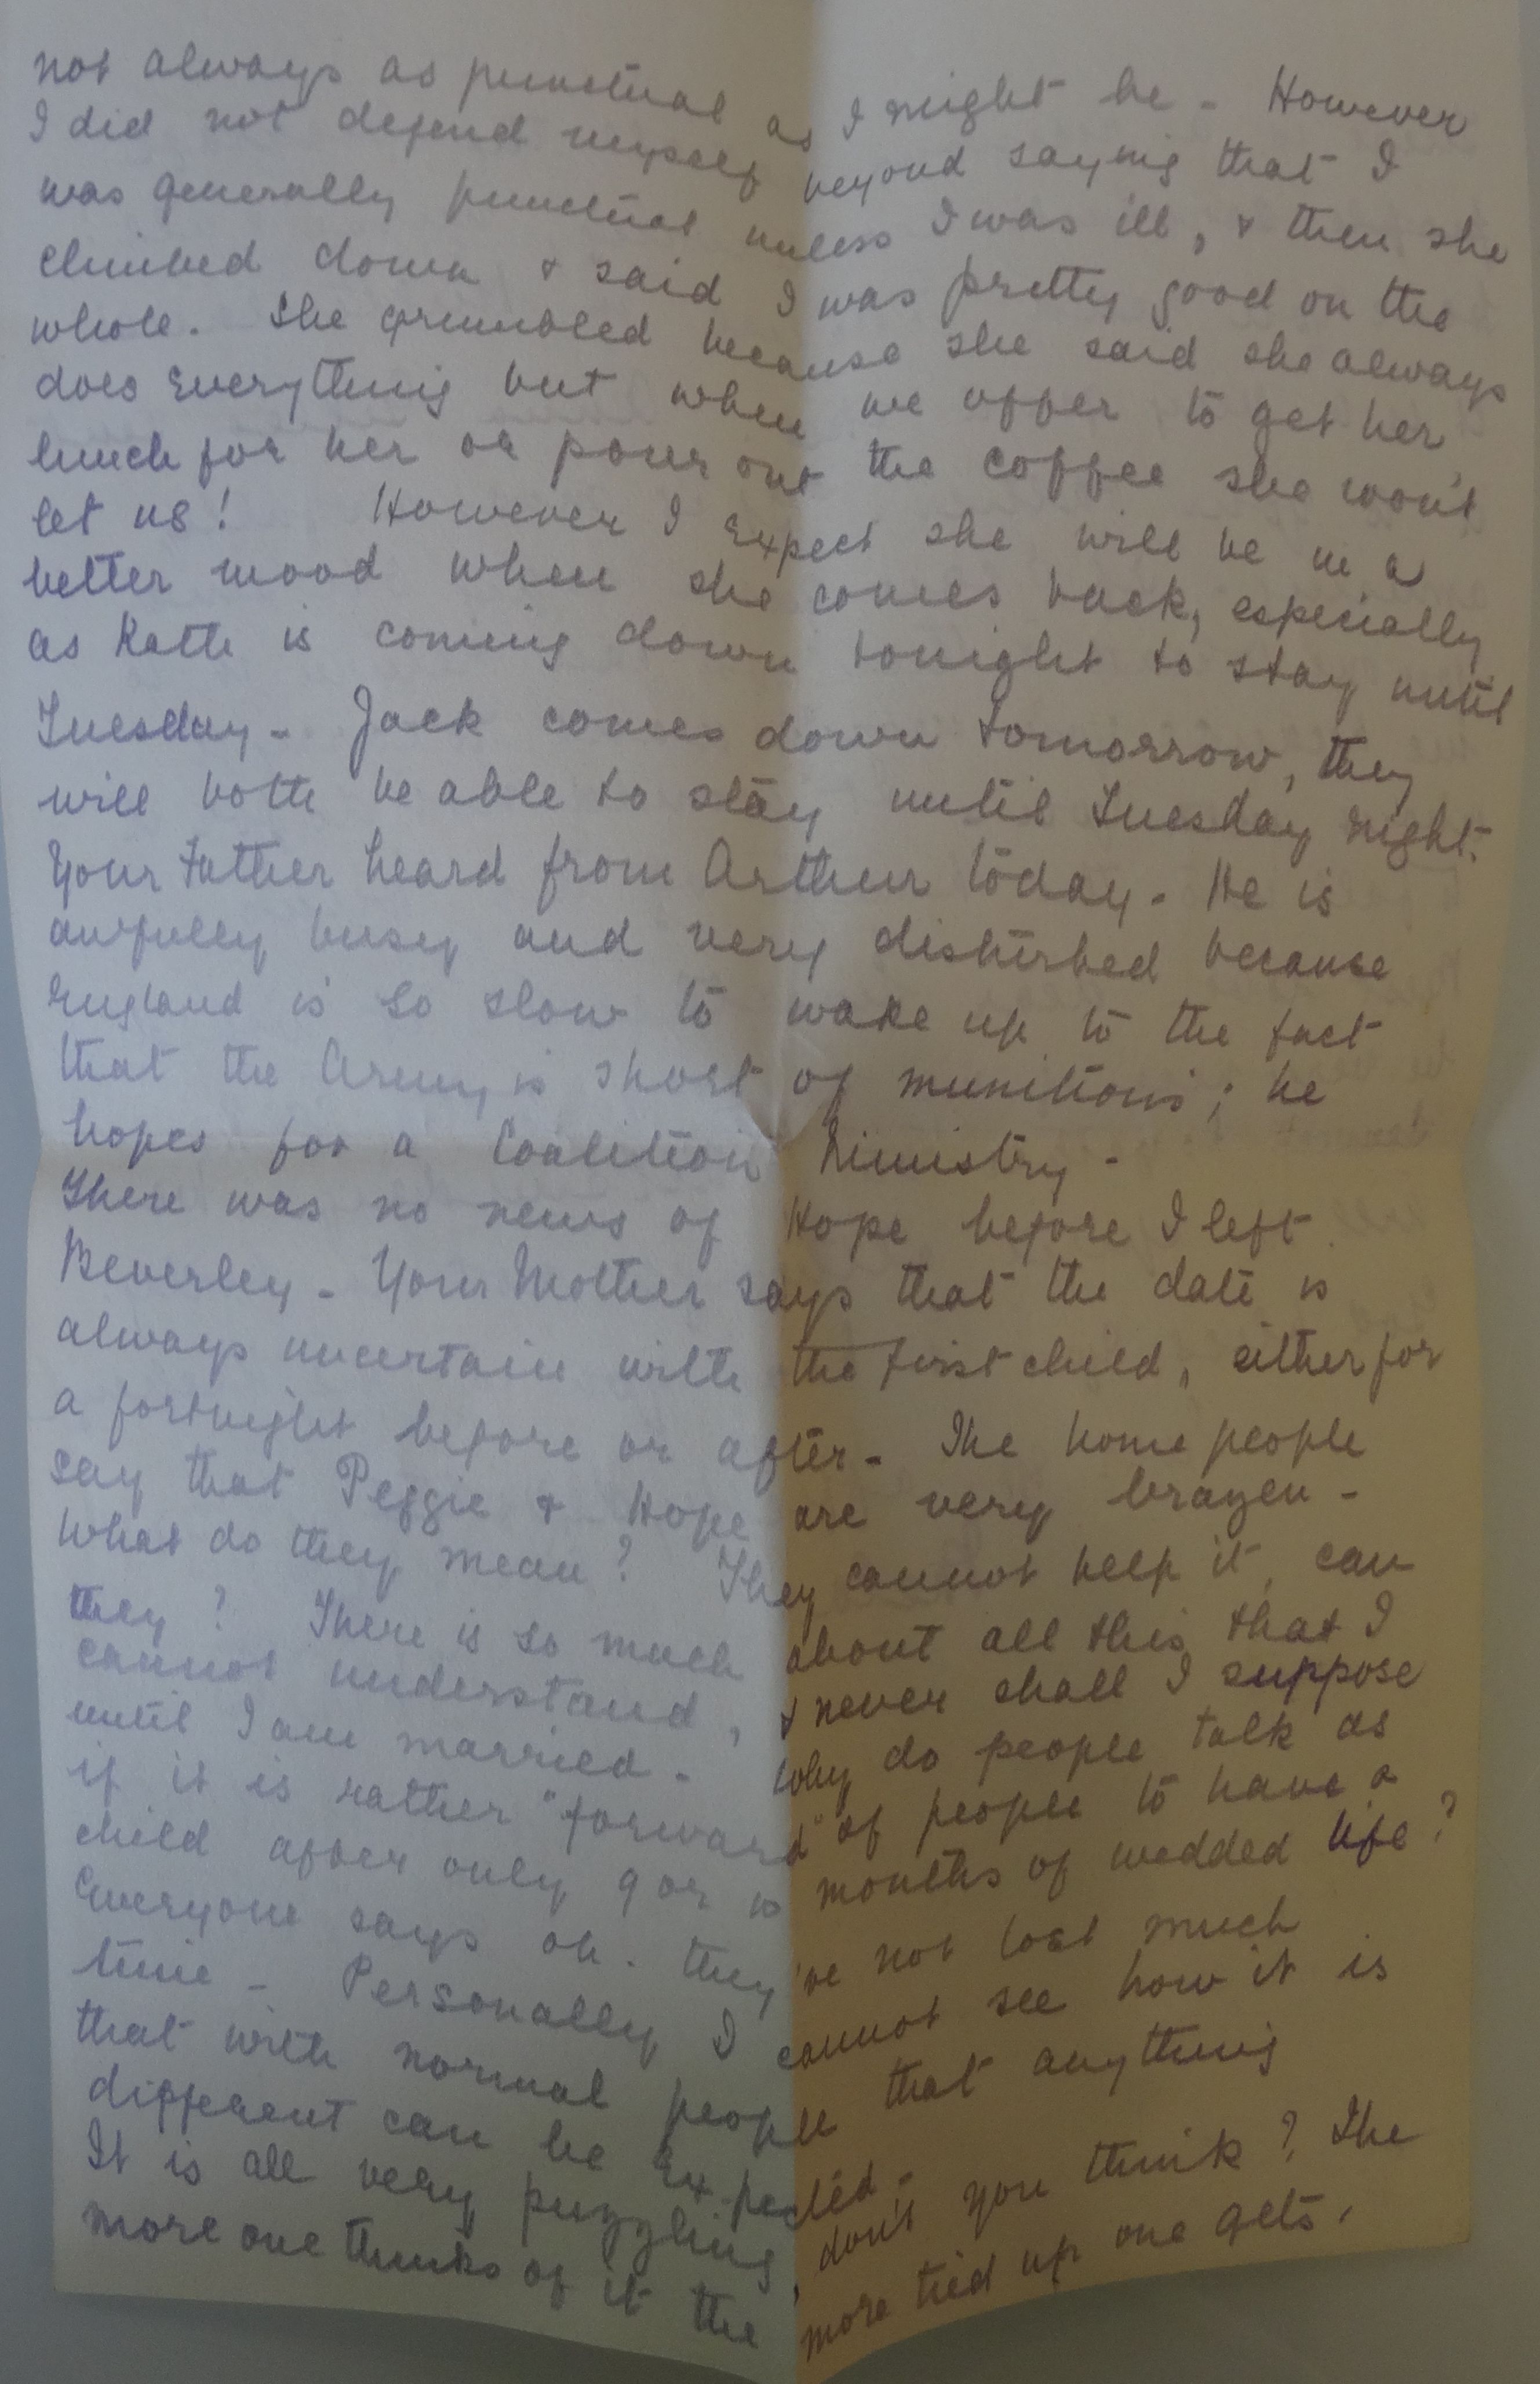 not always as punctual as I might be - However
I did not defend myself beyond saying that I
was generally punctual unless I was ill, & then she
climbed down & said I was pretty good on the
whole. She grumbled because she said she always
does everything but when we offer to get her
lunch for her or pour out the coffee she won't
let us! However I expect she will be in a
better mood when she comes back, especially
as Kath is coming down tonight to stay until
Tuesday - Jack comes down tomorrow, they
will both be able to stay until Tuesday night.
Your Father heard from Arthur today - He is
awfully busy and very disturbed because
England is so slow to wake up to the fact
that the Army is short of munitions; he
hopes for a Coalition Ministry -
There was no news of Hope before I left
Beverley - Your Mother says that the date is
always uncertain with the first child, either for
a fortnight before or after - The home people
say that Peggie & Hope are very brazen -
What do they mean? They cannot help it, can
they? There is so much about all this that I
cannot understand, & never shall I suppose
until I am married - Why do people talk as
if it is rather "forward" of people to have a
child after only 9 or 10 months of wedded life?
Everyone says oh. they've not lost much
time - Personally I cannot see how it is
that with normal people that anything
different can be expected -
It is all very puzzling, don't you think? The
more one thinks of it the more tied up one gets.